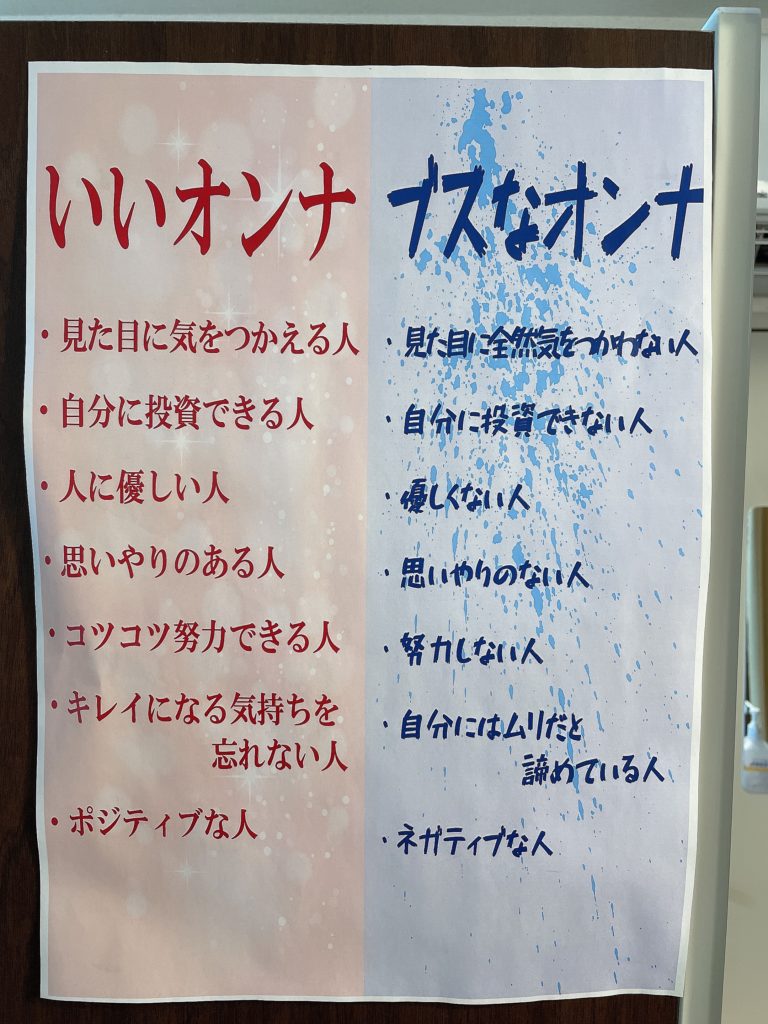 いいオンナ
・見た目に気をつかえる人
・自分に投資できる人
・人に優しい人
・思いやりのある人
・コツコツ努力できる人
・キレイになる気持ちを
忘れない人
・ポジティブな人
ブスなオンナ
・見た目に全然気をつかわない人
・自分に投資できない人
・優しくない人
・思いやりのない人
・努力しない人
・自分にはムリだと
諦めている人
・ネガティブな人